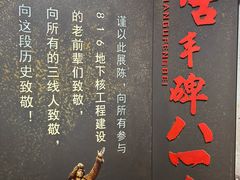 古丰碑八一
IANGUFENGBEI
谨以此展陈，向所有参与
816地下核工程建设
的老前辈们致敬，
向所有的三线人致敬，
向这段历史致敬！